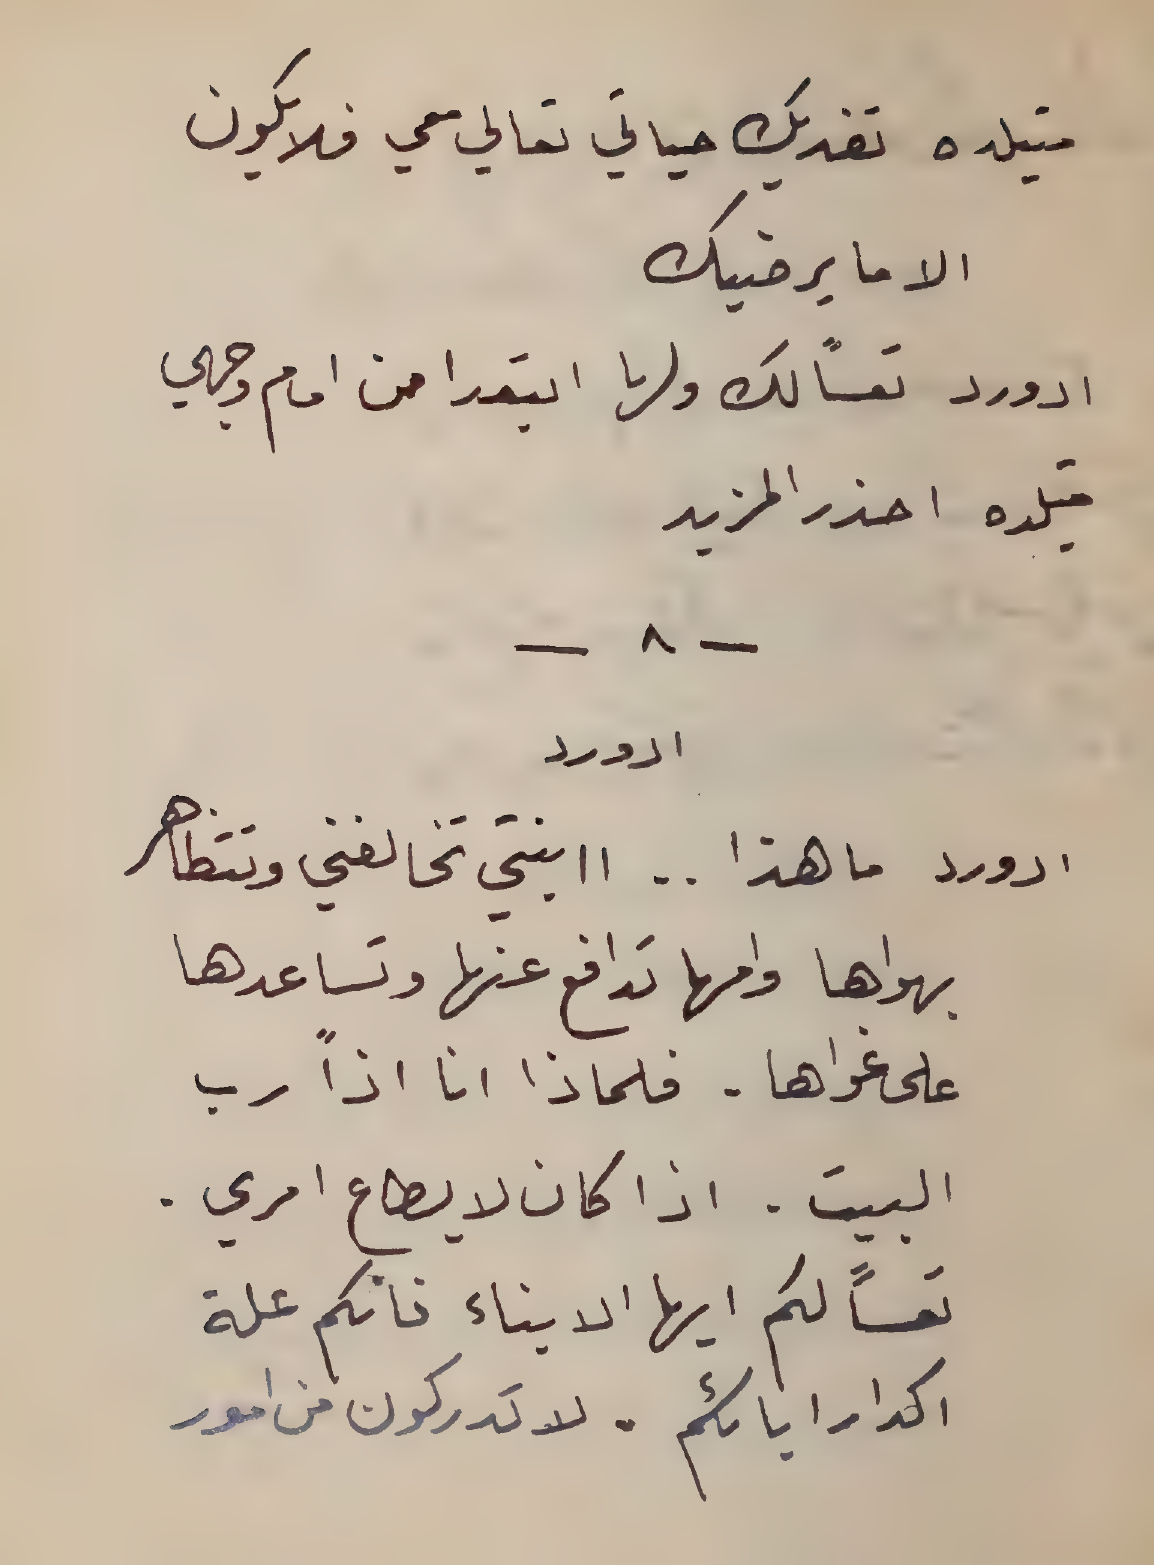 متيلده تفديك حياتي تعالي معي فلا يكون
الا ما يرضيك
ادورد تعساً لك ولها ابتعدا من امام وجهي
متيلده احذر المزيد
— ٨ —
ادورد
ادورد ما هذا .. اابنتي تخالفني وتتظاهر
بهواها وامها تدافع عنها وتساعدها
على غواها . فلماذا انا اذاً رب
البيت . اذا كان لا يطاع امري .
تعساً لكم ايها الابناء فانكم علة
اكدار ابائكم . لا تدركون من امور